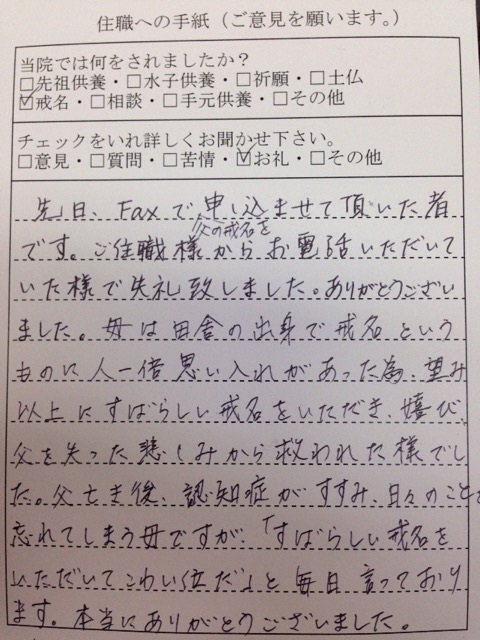 住職への手紙（ご意見を願います。）
当院では何をされましたか？
□先祖供養・□水子供養・□祈願・□土仏
☑戒名・□相談・□手元供養・□その他
チェックをいれ詳しくお聞かせ下さい。
□意見・□質問・□苦情・☑お礼・□その他
先日、Faxで申し込ませて頂いた者
父の戒名を
です。ご住職様からお電話いただいて
いた様で失礼致しました。ありがとうござい
ました。母は田舎の出身で戒名という
ものに人一倍思い入れがあった為、望み
以上にすばらしい戒名をいただき、嬉び、
父を失った悲しみから救われた様でし
た。父亡き後、認知症がすすみ、日々のことを
忘れてしまう母ですが、「すばらしい戒名を
いただいてこわい位だ」と毎日言っており
ます。本当にありがとうございました。